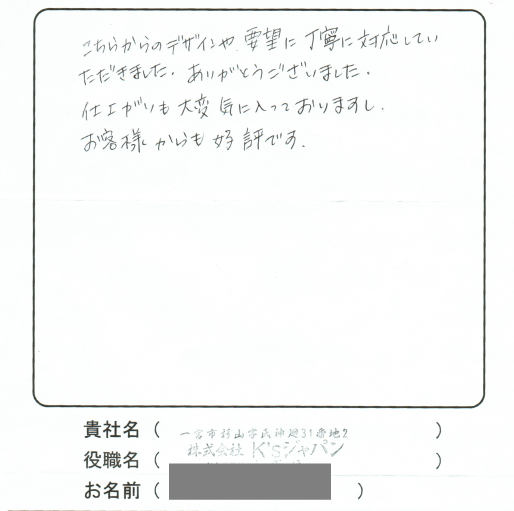 こちらからのデザインや要望に丁寧に対応してい
ただきました。ありがとうございました。
仕上がりも大変気に入っておりますし、
お客様からも好評です。
貴社名（ 一宮市 山字氏神廻31番地2
株式会社 K'sジャパン ）
役職名（ ）
お名前（ ）